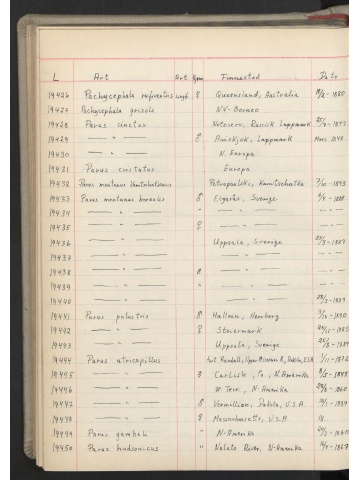 L Art Art Kjønn Finnested Dato
19426 Pachycephala rufiventris ungf. ♀ Queensland, Australia -1880
19427 Pachycephala grisola NV-Borneo
19428 Parus cinctus Notosero, Russisk Lappmark -1877
19429 — " — ♂ Aniskjok, Lappmark Mars 1848
19430 — " — N. Europa
19431 Parus cristatus Europa
19432 Parus montanus kamtschatkensis Petropalski, Kamtschatka 7/10-1893
19433 Parus montanus borealis ♂ Elgarås, Sverige -1888
19434 — " — " — " —
19435 — " — ♀ — " —
19436 — " — Uppsala, Sverige
19437 — " — — " —
19438 — " — ♂ — " —
19439 — " — " — " —
19440 — " — — " — -1839
19441 Parus palustris ♂ Hallein, -1890
19442 — " — ♂ Steiermark
19443 — " — Uppsala, Sverige
19444 Parus atricapillus Fort Randall, Upper Missouri R., Dakota, U.S.A. 1/11-1872
19445 — " — ♂ Carlisle, Pa., N. Amerika -1845
19446 — " — W. Terr., N-Amerika -1860
19447 — " — ♂ Vermillion, Dakota, U.S.A. -1884
19448 — " — ♀ Massachusetts, U.S.A. 18
19449 Parus gambeli " N-Amerika -1860
19450 Parus hudsonicus " Nulato River, N-Amerika -1867